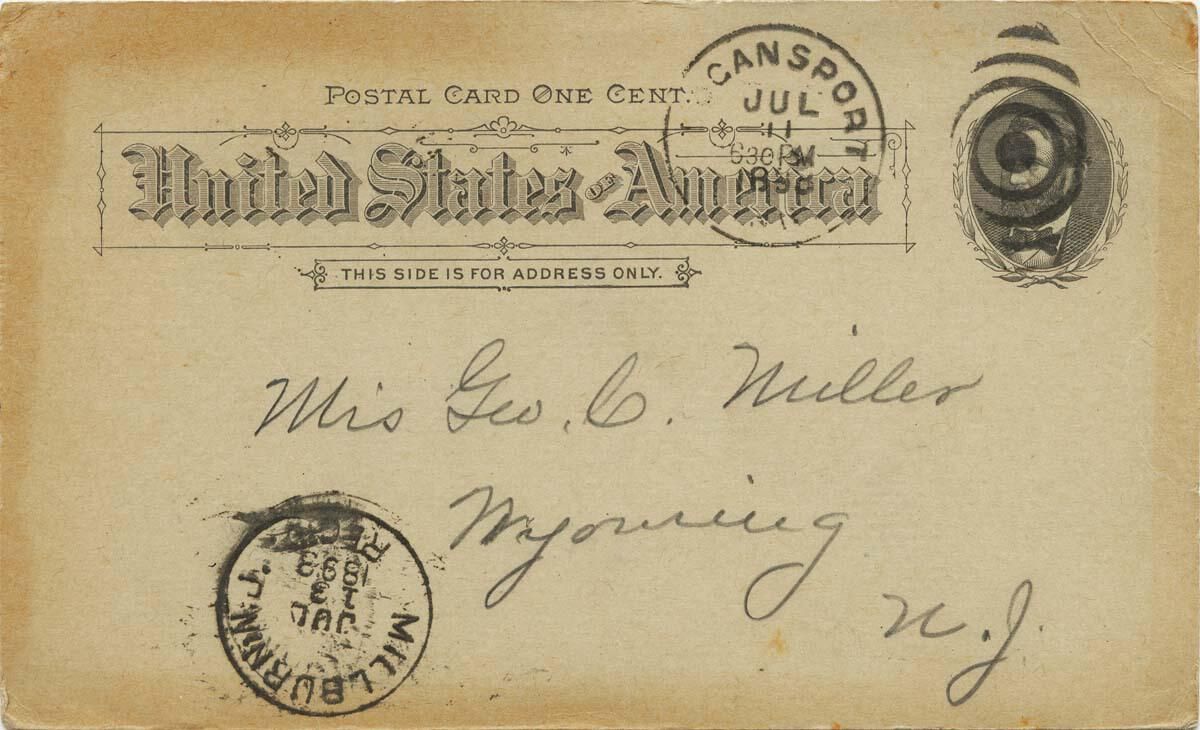 POSTAL CARD ONE CENT.
United States OF America
THIS SIDE IS FOR ADDRESS ONLY.
GANSPORT
JUL
11
630PM
Mrs Geo. C. Miller
Wyoming
N.J.
MILLBURN N.J.
JUL
13
REC'D